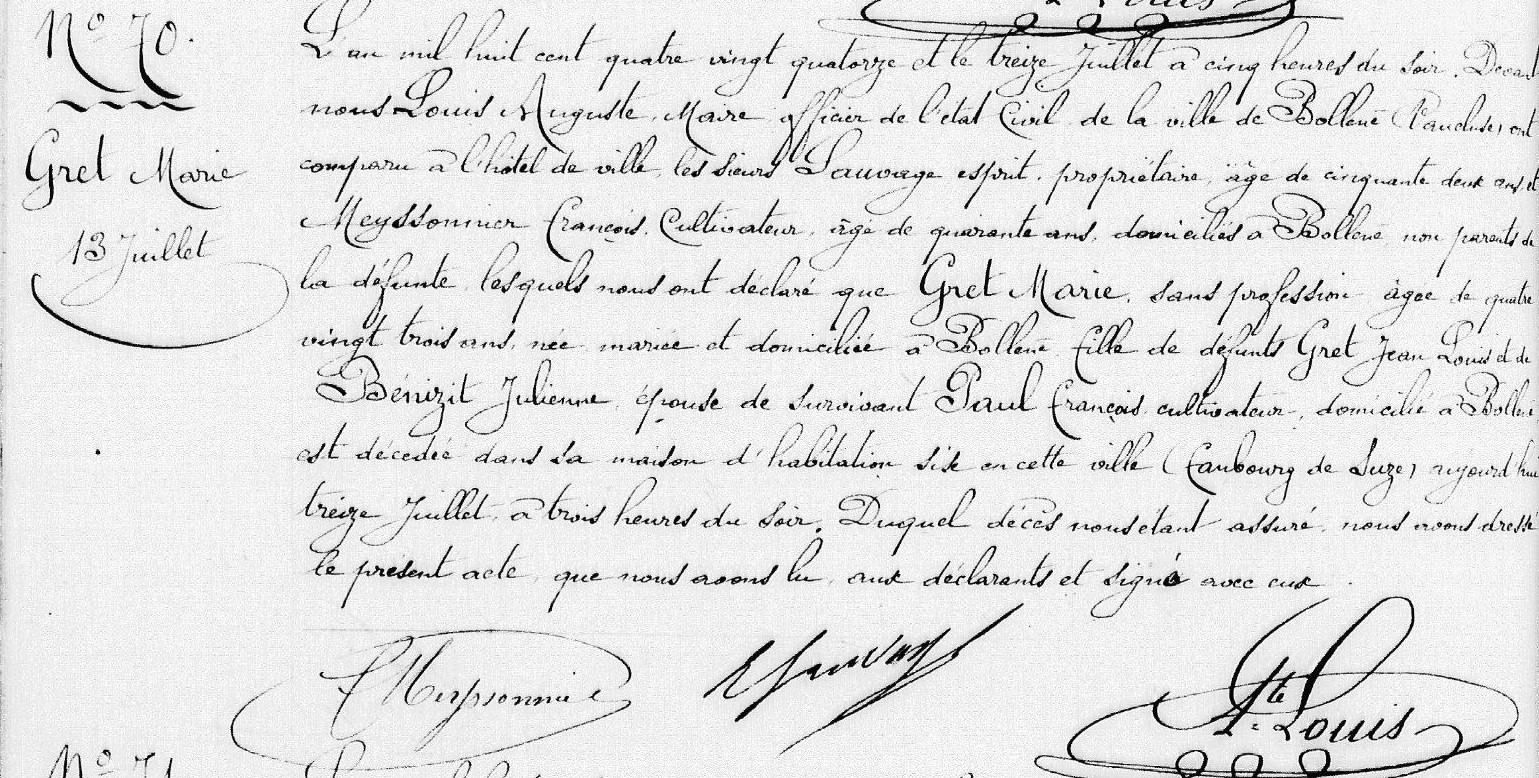 Louis
N° 70.
Gret Marie
13 Juillet
L'an mil huit cent quatre vingt quatorze et le treize Juillet à cinq heures du soir. Devant
nous Louis Auguste, Maire officier de l'état Civil de la ville de Bollène (Vaucluse) ont
comparu à l'hôtel de ville, les sieurs Sauvage esprit, propriétaire, âgé de cinquante deux ans, et
Meyssonnier François, Cultivateur, âgé de quarante ans, domiciliés à Bollène, non parents de
la défunte, lesquels nous ont déclaré que Gret Marie, sans profession âgée de quatre
vingt trois ans, née, mariée et domiciliée à Bollène fille de défunts Gret Jean Louis et de
Bénizit Julienne, épouse de survivant Paul François, cultivateur, domicilié à Bollène
est décédée dans sa maison d'habitation sise en cette ville (faubourg de Suze) aujourd'hui
treize Juillet, à trois heures du soir. Duquel décès nous étant assuré, nous avons dressé
le présent acte, que nous avons lu, aux déclarants et signé avec eux.
F Meyssonnier E Sauvage Ate Louis
N° 71